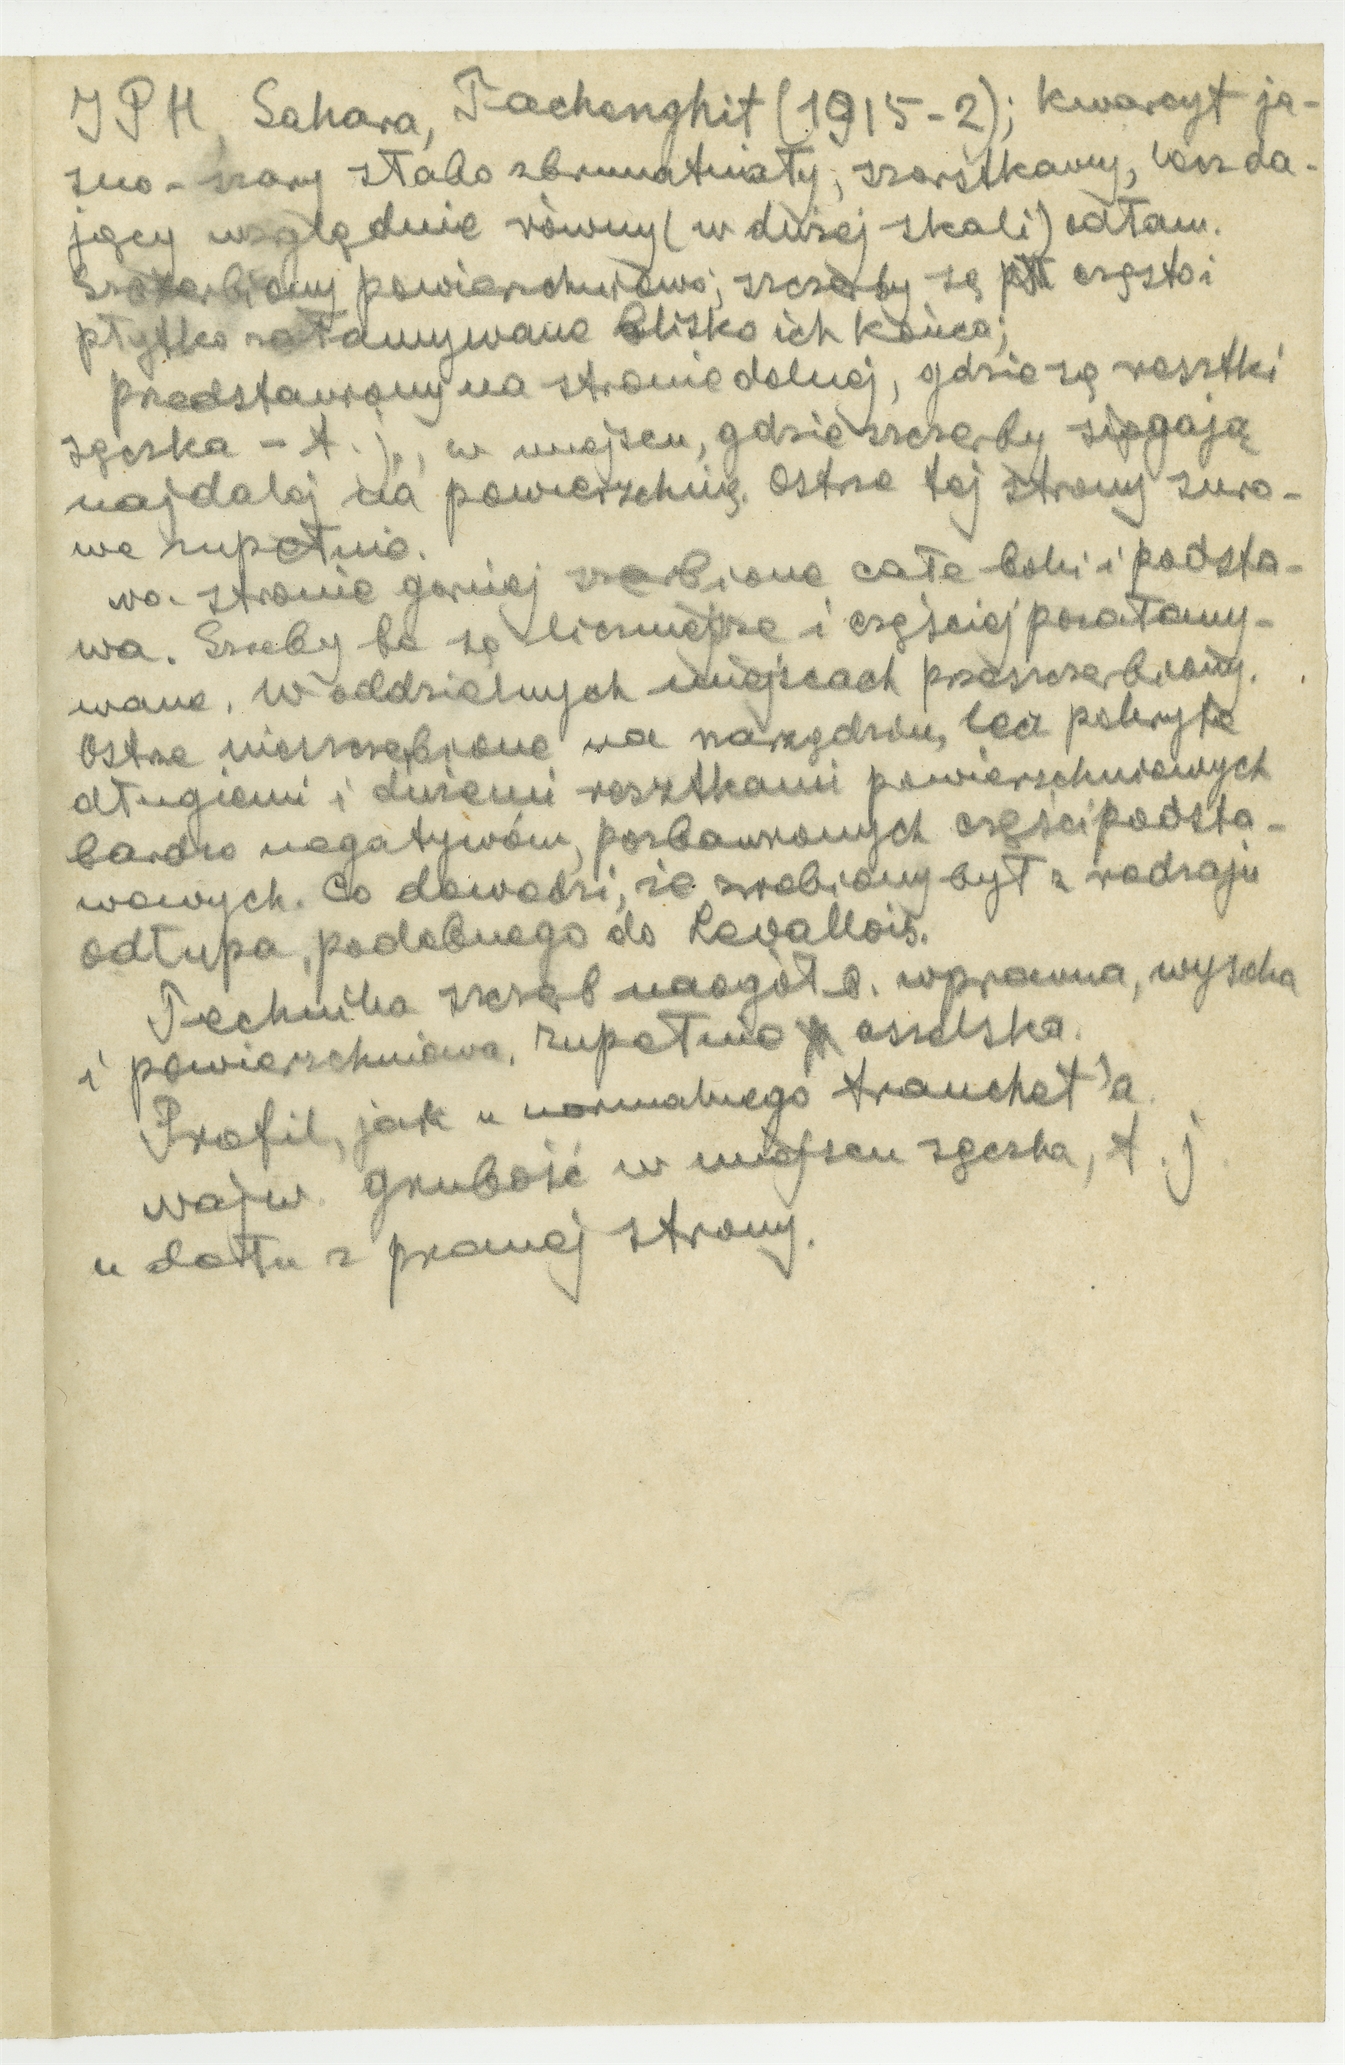 JPH, Sahara, Tachenghit (1915-2); kwarcyt ja-
sno-szary słabo zbrunatniały, szorstkawy, lecz da-
jący względnie równy (w dużej skali) odłam.
powierzchniowo; szczerby są często i
płytko załamywane blisko ich końca;
przedstawiony na stronie dolnej, gdzie są resztki
sęczka - t. j., w miejscu, gdzie szczerby sięgają
najdalej na powierzchnię. Ostrze tej strony suro-
we zupełnie.
na stronie gornej szerbione całe boki i podsta-
wa. Szreby te są liczniejsze i częściej pozałamy-
wane. W oddzielnych miejscach przeszczerbiony.
Ostrze nieszczerbione na narzędziu, lecz pokryte
długiemi i dużemi resztkami powierzchniowych
bardzo negatywów, pozbawionych części podsta-
wowych. Co dowodzi, że zrobiony był z rodzaju
odłupa, podobnego do Levallois.
Technika szczerb naogół b. wprawna, wyscha
i powierzchniowa, zupełnie aszelska.
Profil, jak u normalnego tranchet'a.
Najw. grubość w miejscu sęczka, t. j
u dołu z prawej strony.